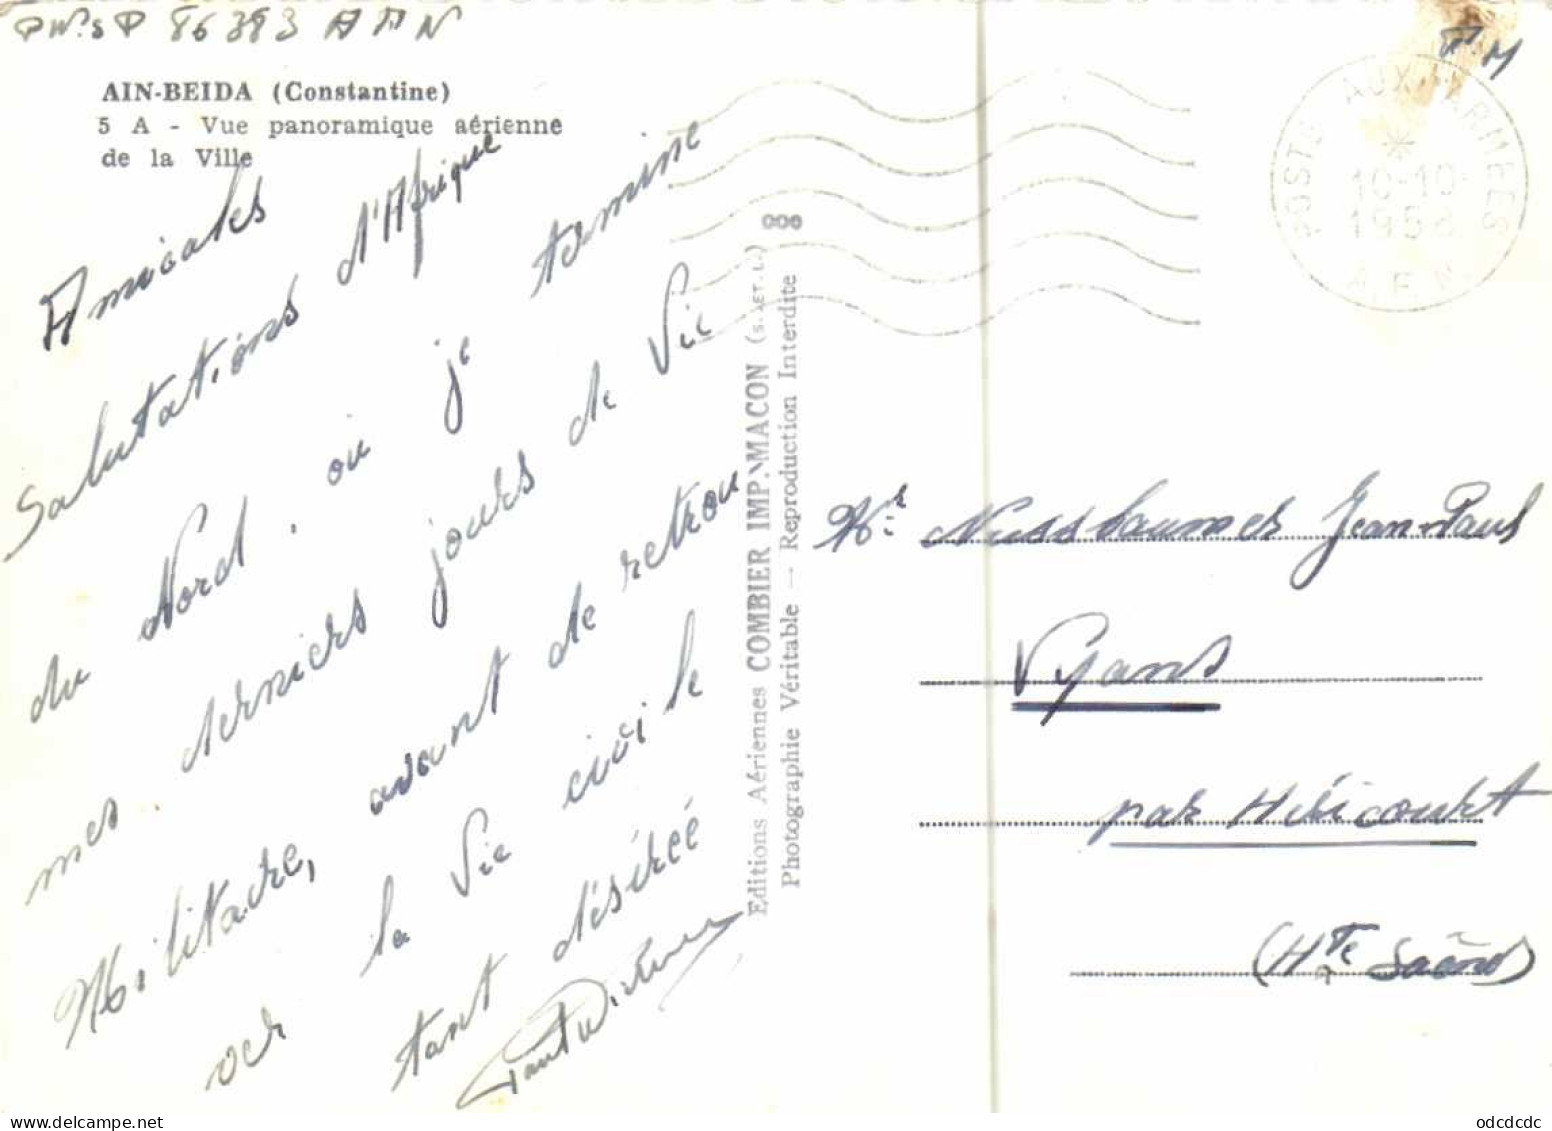 86383 AFN
FM
AIN-BEIDA (Constantine)
5 A - Vue panoramique aérienne
de la Ville
Amicales
Salutations d'Afrique
du Nord, où je termine
mes derniers jours de Vie
Militaire, avant de retrou
ver la Vie civile le
tant désirée
Editions Aériennes COMBIER IMP. MACON (S.-ET-L.)
Photographie Véritable — Reproduction Interdite
POSTE AUX ARMEES
10-10
A.F.N
Mr Nussbaumer Jean-Paul
Vyans
par Héricourt
(Hte Saône)
odcdcdc